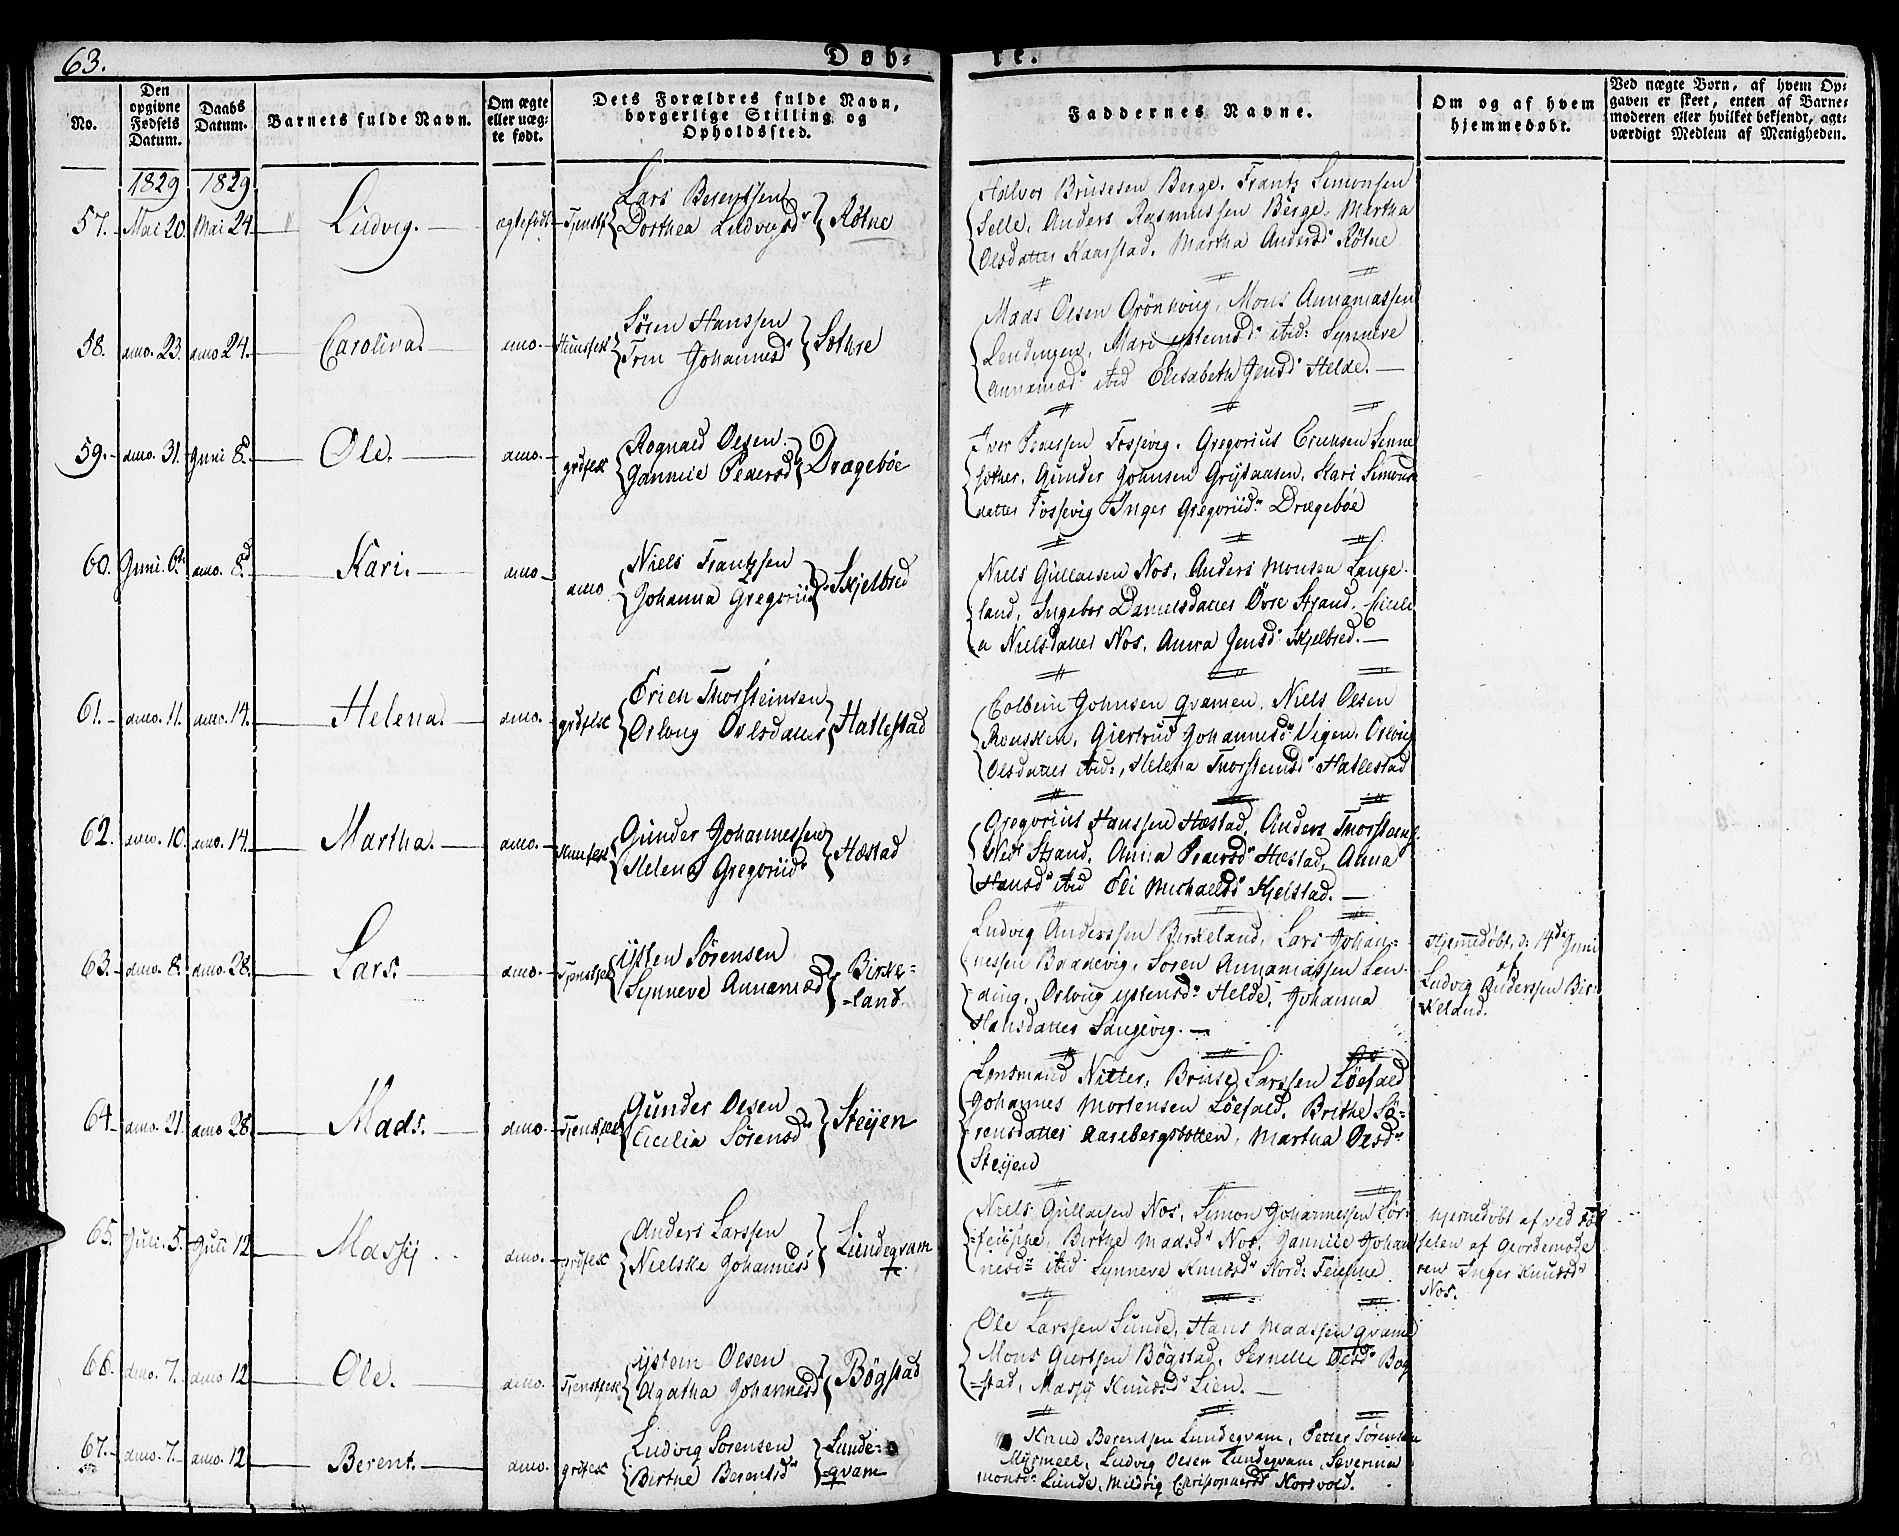 63.
Døb-
te.
No.
Den opgivne Fødsels Datum.
Daabs Datum.
Barnets fulde Navn.
Om ægte eller uæg-
te født.
Dets Forældres fulde Navn,
borgerlige Stilling og
Opholdssted.
Faddernes Navne.
Om og af hvem
hjemmedøbt.
Ved uægte Børn, af hvem Op-
gaven er skeet, enten af Barne-
moderen eller hvilket bekjendt, agt-
værdigt Medlem af Menigheden.
1829 1829
57. Mai 20. Mai 24. Ludvig. ægtefødt
Lars Berentsen
Dorthea Ludvigsd. Rötne
Halvor Brusesen Berge, Frantz Simonsen
Selle, Anders Rasmussen Berge, Martha
Olsdatter Kaarstad, Martha Andersd. Rötne
58. dmo. 23. dmo 24. Carolina. dmo. Huusfolk
Sören Hanssen
Trin Johannesd. Sothre
Mads Olsen Grönevig, Mons Annanassen
Lendingen, Mari ystensd. ibid: Synneve
Annanæd. ibid Elisabeth Jensd. Helde.
59. dmo. 31. Juni 8. Ole. dmo. grdfolk
Rognald Olsen
Jannicke Pedersd. Drægeböe
Iver Pedersen Fossevig. Gregorius Ericksen Senne
sother, Gunder Johnsen Grytaasen, Kari Simons
datter Fossevig Inger Gregoriid. Drægeböe
60. Juni 6. dmo. 8. Kari. dmo dmo
Niels Frantzsen
Johanna Gregoriid. Skjelbred
Niels Gullacsen Nos, Anders Monsen Lange-
land, Ingebor Danielsdatter Övre Strand, Cicili
a Nielsdatter Nos, Anna Jensd. Skjelbred.
61. dmo. 11. dmo. 14. Helena. dmo. grdfolk
Erick Thorsteinsen
Oslong Olsdatter Hatlestad
Colbein Johnsen Qvamen, Niels Olsen
Giertrud Johannesd. Vigen, Oslong
Olsdatter ibid:, Helena Thorsteinsd. Hatlestad
62. dmo. 10. dmo. 14. Martha. dmo. Huusfolk
Gunder Johannessen
Helena Gregoriid. Hæstad
Gregorius Hanssen Hæstad, Anders Thorstens.
Nedr. Strand, Anna Pedersd. Hæstad, Anna
Hansd. ibid Eli Michaelsd. Kjelstad.
63. dmo. 8. dmo. 28. Lars. dmo. Tjenstfolk
ysten Sörensen
Synneve Annanæd. Birke-
land.
Ludvig Anderssen Birkeland, Lars Johan-
nessen Bradevig, Soren Annanassen Len-
ding, Oslong ystensd. Helde, Johanna
Hansdatter Sangevig.
Hjemmedöbt d: 14de Juni
af
Ludvig Anderssen Bir-
keland.
64. dmo. 21. dmo 28. Mads. dmo. Tjenstfolk
Gunder Olsen
Cicilia Sörensd. Steyen
Lensmand Nitter, Bruse Larssen Löefald
Johannes Mortensen Löefald, Brithe Sö-
rensdatter Aarebergsbotten, Martha Olsd.
Steyen
65. Juli. 5. Juli 12. Massy dmo. grdfolk
Anders Larssen
Nielske Johannesd. Lundeqvam
Niels Gullacsen Nos, Simon Johannessen Sör-
Feieshe, Birthe Madsd. Nos, Jannicke Johan
nesd. ibid Synneve Knudsd. Nord: Feieshe
hjemedöbt af ved Föd
selen af Giordemode
ren Inger Knudsd.
Nos.
66. dmo. 7. dmo 12. Ole. dmo. Tjenstfolk
ystein Olsen
Agatha Johannesd. Bögstad
Ole Larssen Sunde, Hans Madssen Qvame
Mons Giertsen Bögstad, Pernille Olsd. Bög
stad, Massy Knudsd. Lien.
67. dmo. 7. dmo. 12. Berent. dmo. grdfolk
Ludvig Sörensen
Birthe Berentsd. Lunde-
qvam
Knud Berentsen Lundeqvam, Petter Sörensen
Ludvig Olsen Lundeqvam, Severina
monsd. Lunde, Mildrig Korsvold.